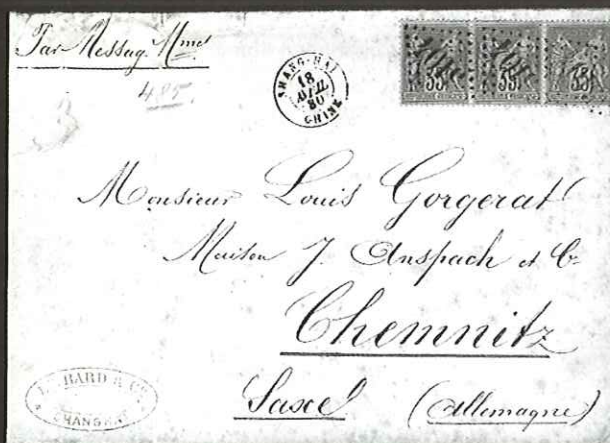 Par Messag. Mmes
SHANG-HAI
18
AVRIL
80
CHINE
35
35
35
485
Monsieur Louis Gorgerat
Maison J. Anspach et Cie
Chemnitz
Saxe (Allemagne)
BARD & Co
SHANGHAI